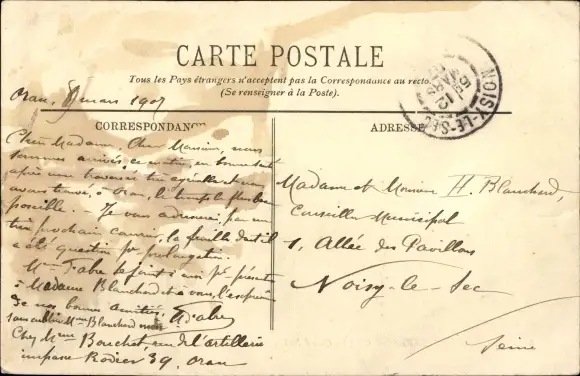 CARTE POSTALE
Tous les Pays étrangers n'acceptent pas la Correspondance au recto.
(Se renseigner à la Poste).
NOISY-LE-SEC
12
MARS
Oran, 8 mars 1907
CORRESPONDANCE
ADRESSE
Chère Madame, Cher Monsieur, nous
sommes arrivés, ce matin, en bonne santé
après une traversée très agréable et nous
avons trouvé, à Oran, le temps le plus beau
possible. - Je vous adresserai, par un
très prochain courrier, la feuille dont il
a été question pr prolongation.
Mme Fabre se joint à moi pr présenter
à Madame Blanchard et à vous, l'expression
de nos bonnes amitiés, Fabre
sans oublier Mme Blanchard
Chez Mme Bouchet, rue de l'artillerie
impasse Rodier 39, Oran
Madame et Monsieur H. Blanchard,
Conseiller Municipal
1, Allée des Pavillons
Noisy-le-Sec
Seine